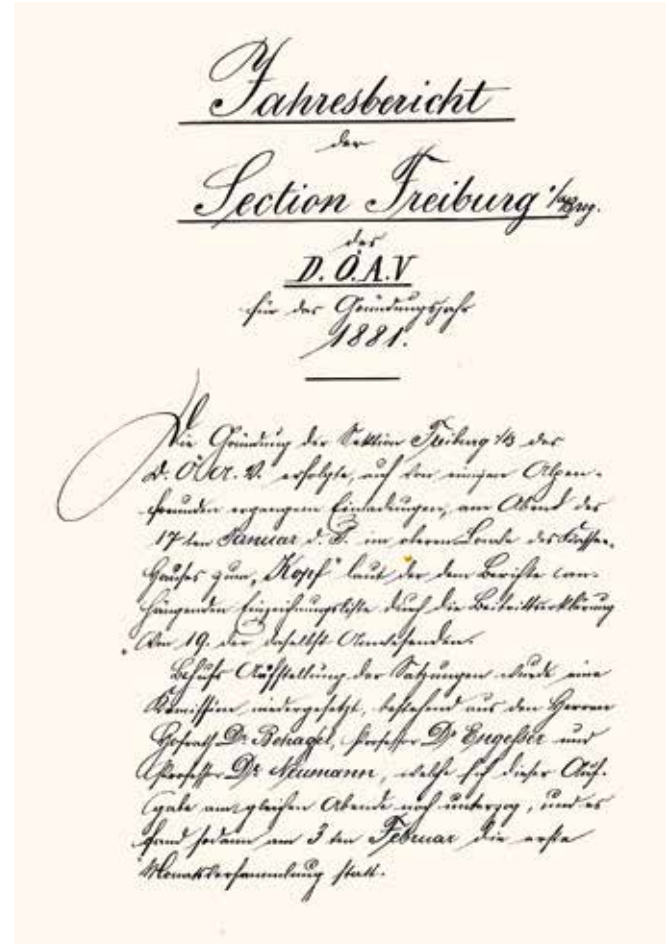 Jahresbericht
der
Section Freiburg i/Brsg.
des
D. Ö. A. V
für das Gründungsjahr
1881.
Die Gründung der Sektion Freiburg i/B des
D. Ö. A. V. erfolgte, auf von einigen Alpen-
freunden ergangenen Einladungen, am Abend des
17ten Januar d. J. im oberen des Kaffee-
hauses zum „Kopf“ laut der dem Berichte an-
hängenden Einzeichnungsliste durch die Beitrittserklärung
von 19. der daselbst Anwesenden.
Behufs Aufstellung der Satzungen wurde eine
Komission niedergesetzt, bestehend aus den Herren
Hofrath Dr. Behagel, Professor Dr Engesser und
Professor Dr Neumann, welche sich dieser Auf-
gabe am gleichen Abende noch unterzog, und es
fand sodann am 3ten Februar die erste
Monatsversammlung statt.